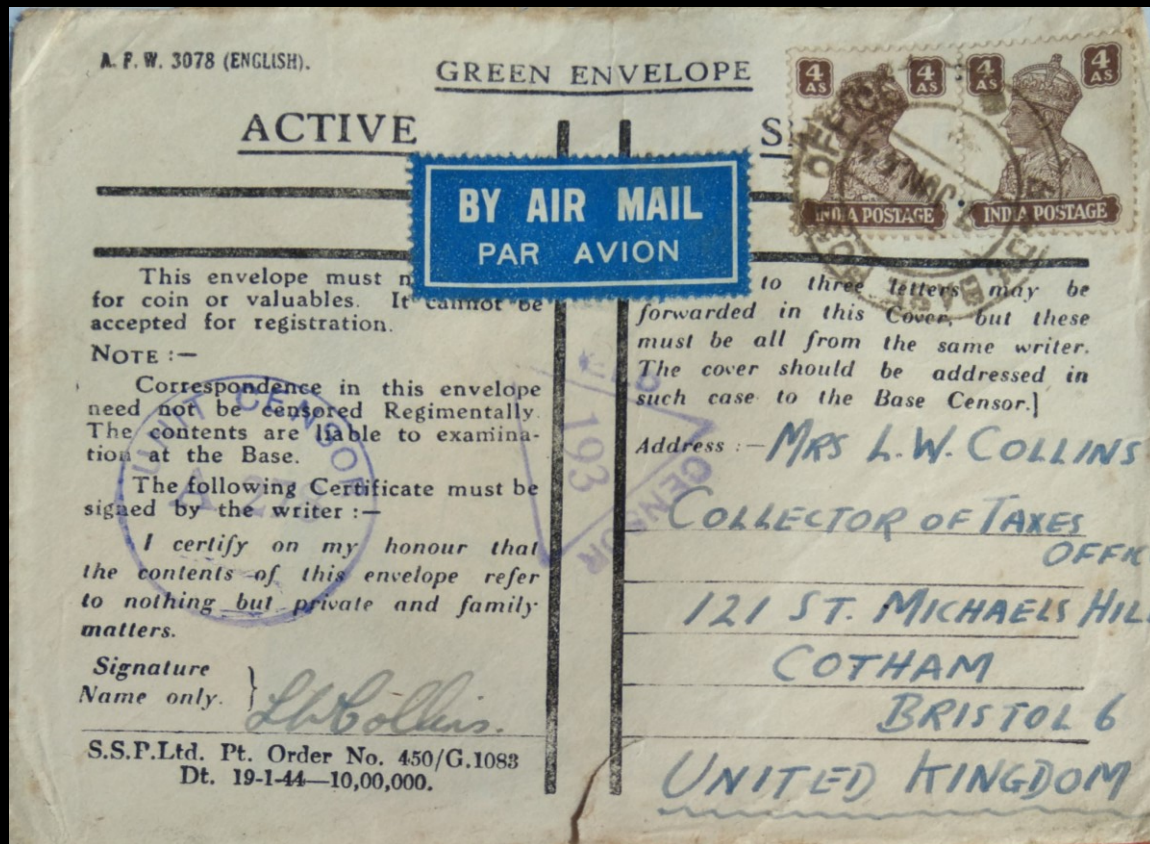 A. F. W. 3078 (ENGLISH).
GREEN ENVELOPE
ACTIVE
BY AIR MAIL
PAR AVION
4 AS 4 AS
INDIA POSTAGE
4 AS 4 AS
INDIA POSTAGE
BASE OFFICE
JUN
This envelope must
for coin or valuables. It cannot be
accepted for registration.
NOTE :—
Correspondence in this envelope
need not be censored Regimentally.
The contents are liable to examina-
tion at the Base.
The following Certificate must be
signed by the writer :—
I certify on my honour that
the contents of this envelope refer
to nothing but private and family
matters.
Signature
Name only. }
L W Collins.
S.S.P.Ltd. Pt. Order No. 450/G.1083
Dt. 19-1-44—10,00,000.
UNIT CENSOR
A
FIELD CENSOR
193
to three letters may be
forwarded in this Cover, but these
must be all from the same writer.
The cover should be addressed in
such case to the Base Censor.]
Address :— MRS L.W. COLLINS
COLLECTOR OF TAXES
OFFIC
121 ST. MICHAELS HILL
COTHAM
BRISTOL 6
UNITED KINGDOM